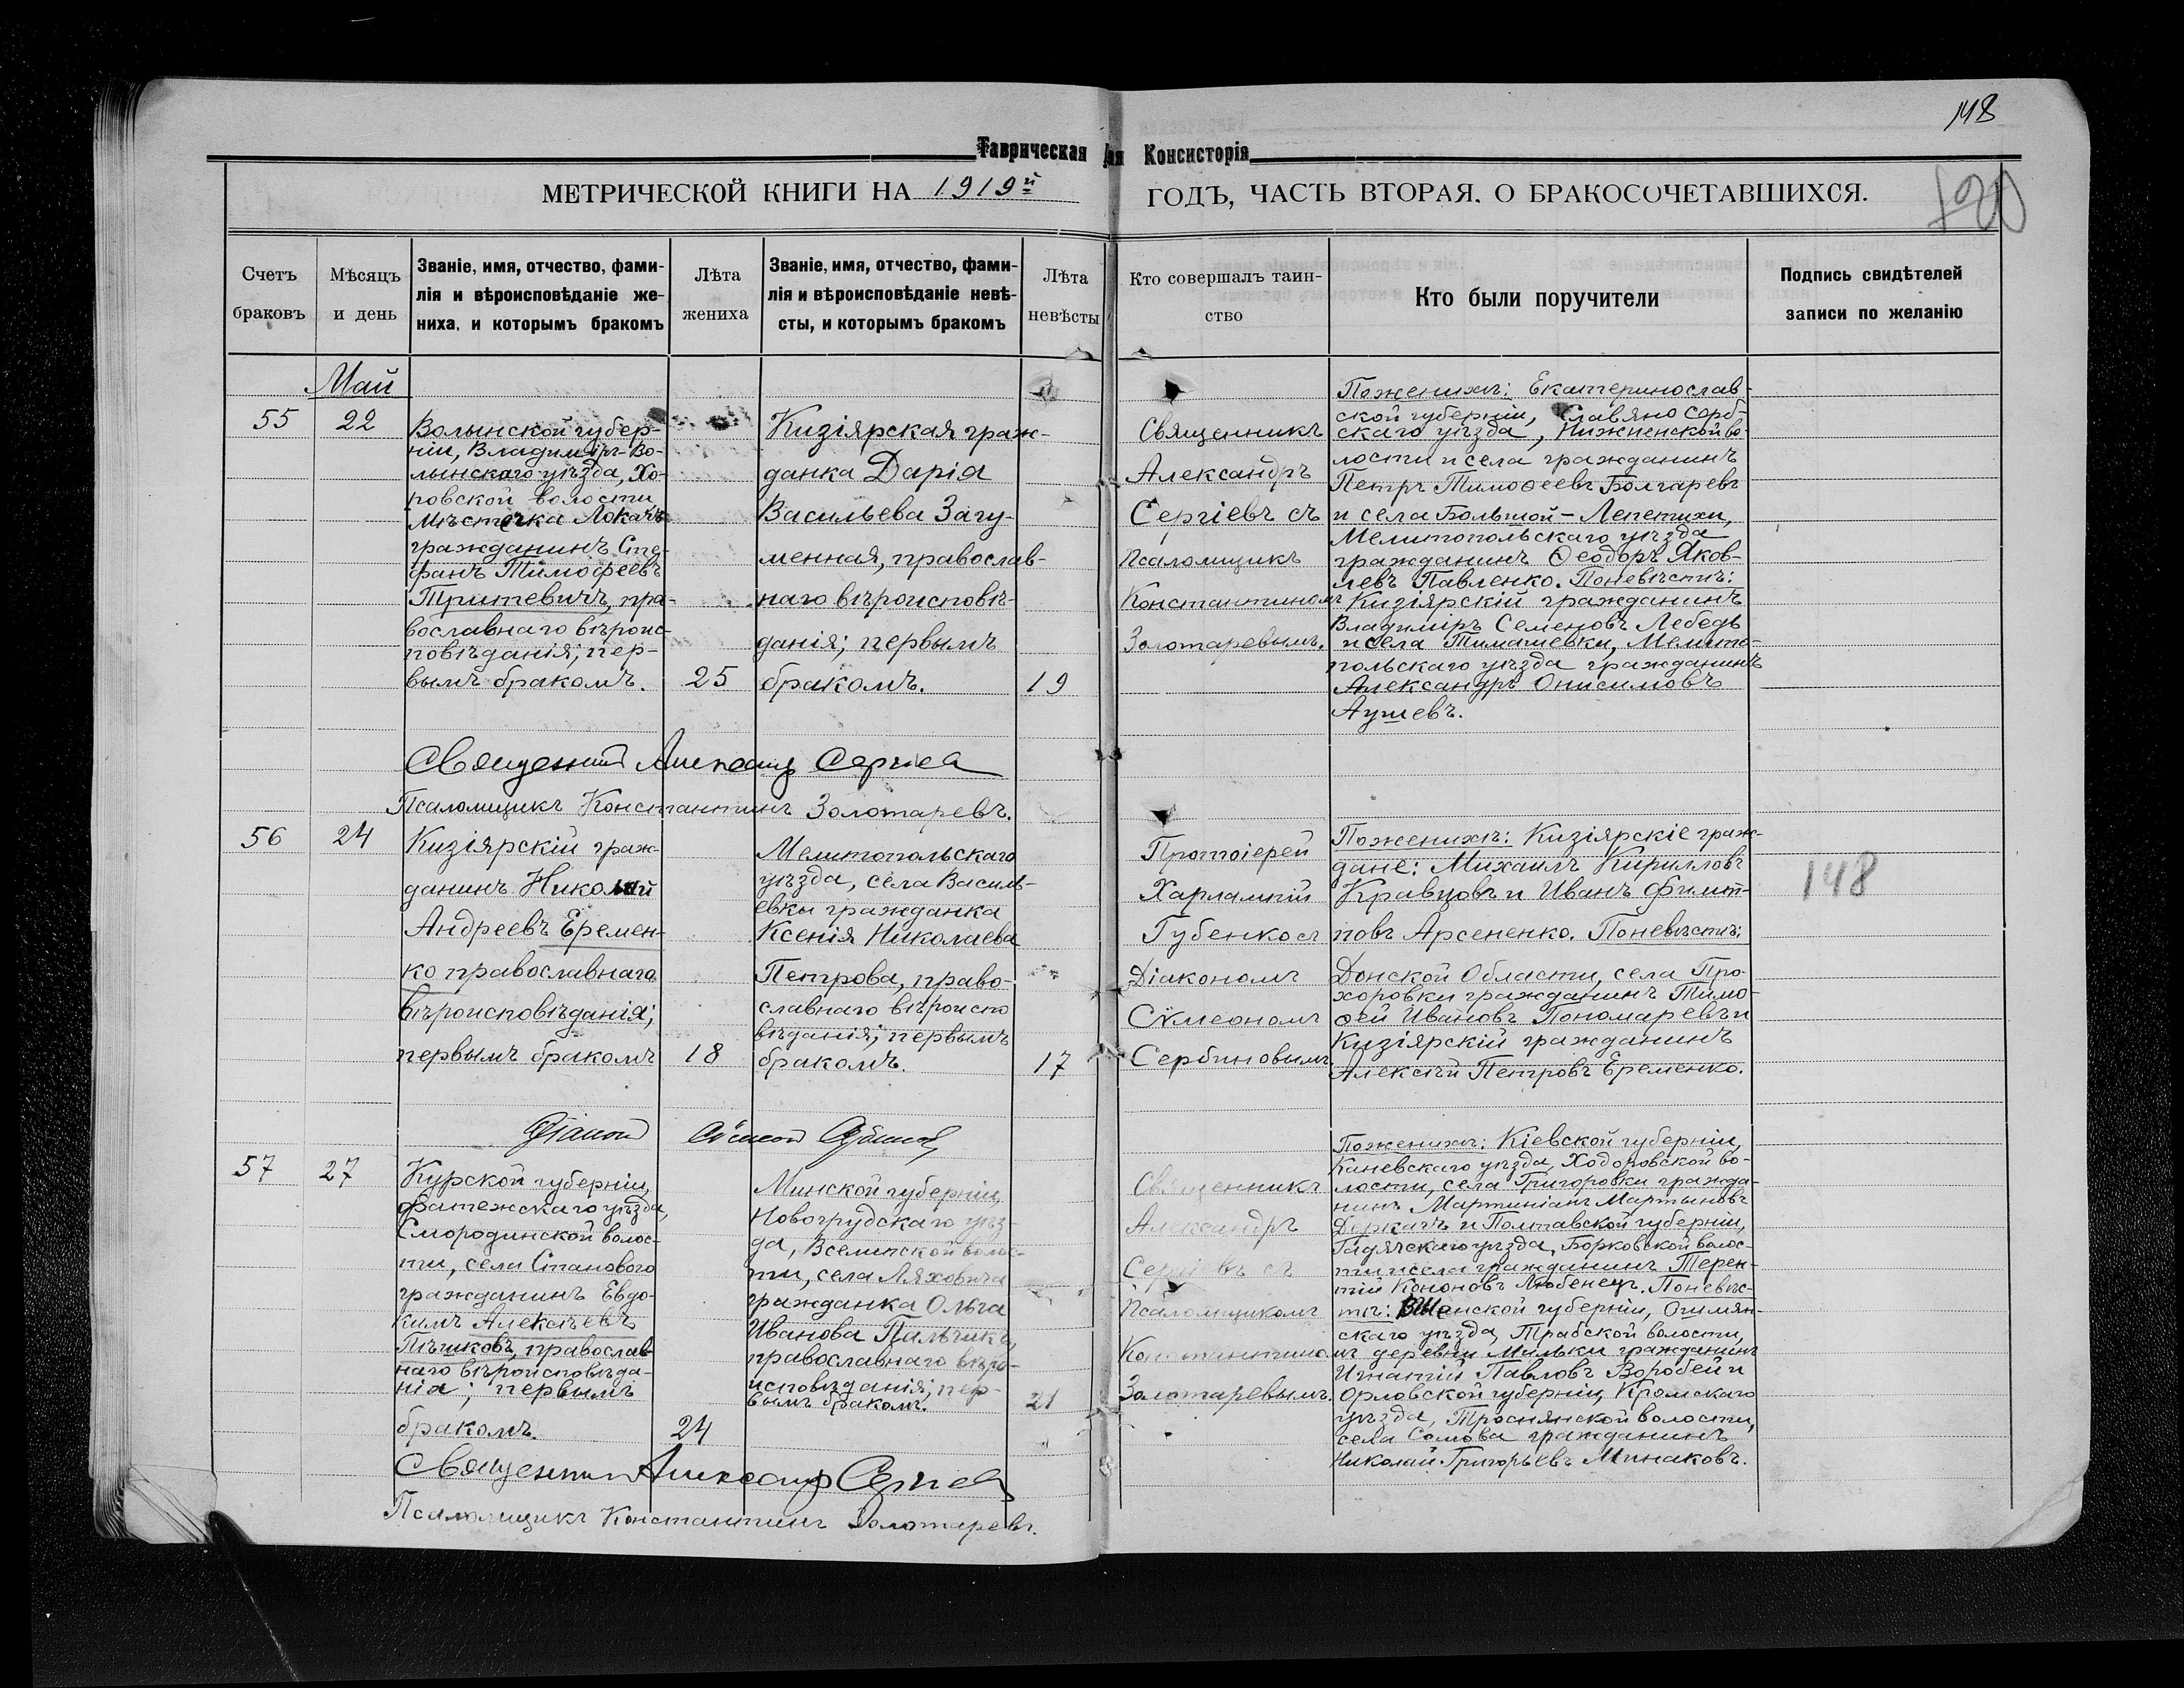 148
Таврическая ая Консисторія
МЕТРИЧЕСКОЙ КНИГИ НА 1919й ГОДЪ, ЧАСТЬ ВТОРАЯ, О БРАКОСОЧЕТАВШИХСЯ.
Счетъ браковъ
Мѣсяцъ и день
Званіе, имя, отчество, фами-
лія и вѣроисповѣданіе же-
ниха, и которымъ бракомъ
Лѣта жениха
Званіе, имя, отчество, фами-
лія и вѣроисповѣданіе невѣ-
сты, и которымъ бракомъ
Лѣта невѣсты
Кто совершалъ таин-
ство
Кто были поручители
Подпись свидѣтелей
записи по желанію
Май
55
22
Волынской губер-
ніи, Владиміръ-Во-
лынскаго уѣзда, Хо-
ровской волости
мѣстечка Локачъ
гражданинъ Сте-
фанъ Тимофеевъ
Тритевичъ, пра-
вославнаго вѣроис-
повѣданія; пер-
вымъ бракомъ.
25
Кизіярская граж-
данка Дарія
Васильева Загу-
менная, православ-
наго вѣроисповѣ-
данія; первымъ
бракомъ.
19
Священникъ
Александръ
Сергіевъ съ
псаломщикъ
Константиномъ
Золотаревымъ.
По женихѣ: Екатеринослав-
ской губерніи, Славяносерб-
скаго уѣзда, Нижненской во-
лости и села гражданинъ
Петръ Тимоѳеевъ Болгаревъ
и села Большой-Лепетихи,
Мелитопольскаго уѣзда
гражданинъ Ѳеодоръ Яков-
левъ Павленко. По невѣстѣ:
Кизіярскій гражданинъ
Владиміръ Семеновъ Лебедь
и села Тимашевки, Мелито-
польскаго уѣзда гражданинъ
Александръ Онисимовъ
Аушевъ.
Священникъ Александръ Сергіевъ
Псаломщикъ Константинъ Золотаревъ.
56
24
Кизіярскій граж-
данинъ Николай
Андреевъ Еремен-
ко православнаго
вѣроисповѣданія;
первымъ бракомъ
18
Мелитопольскаго
уѣзда, села Василь-
евки гражданка
Ксенія Николаева
Петрова, право-
славнаго вѣроиспо
вѣданія; первымъ
бракомъ.
17
Протоіерей
Харлампій
Губенко съ
Діакономъ
Сѵмеономъ
Сербиновымъ
По женихѣ: Кизіярскіе граж-
дане: Михаилъ Кирилловъ
Кравцовъ и Иванъ Филип-
повъ Арсененко. По невѣстѣ:
Донской Области, села Про-
хоровки гражданинъ Тимо-
ѳей Ивановъ Пономаревъ и
Кизіярскій гражданинъ
Алексѣй Петровъ Еременко.
148
Діаконъ Сѵмеонъ Сербиновъ
57
27
Курской губерніи,
Фатежскаго уѣзда,
Смородинской волос-
ти, села Становаго
гражданинъ Евдо-
кимъ Алексѣевъ
Пѣшковъ, православ-
наго вѣроисповѣда-
нія; первымъ
бракомъ.
24
Минской губерніи,
Новогрудскаго уѣз-
да, Вселипской волос-
ти, села Ляховича
гражданка Ольга
Иванова Пальчикъ,
православнаго вѣро-
исповѣданія; пер-
вымъ бракомъ.
21
Священникъ
Александръ
Сергіевъ съ
псаломщикомъ
Константиномъ
Золотаревымъ.
По женихѣ: Кіевской губерніи,
Каневскаго уѣзда, Ходоровской во-
лости, села Григоровки гражда-
нинъ Мартиніанъ Мартыновъ
Деркачъ и Полтавской губерніи,
Гадячскаго уѣзда, Борковской волос-
ти и села гражданинъ Терен-
тій Кононовъ Любенецъ. По невѣс-
тѣ: Виленской губерніи, Ошмян-
скаго уѣзда, Трабской волости,
деревни Мильки гражданинъ
Игнатій Павловъ Воробей и
Орловской губерніи, Кромскаго
уѣзда, Троснянской волости,
села Сомова гражданинъ
Николай Григорьевъ Минаковъ.
Священникъ Александръ Сергіевъ
Псаломщикъ Константинъ Золотаревъ.